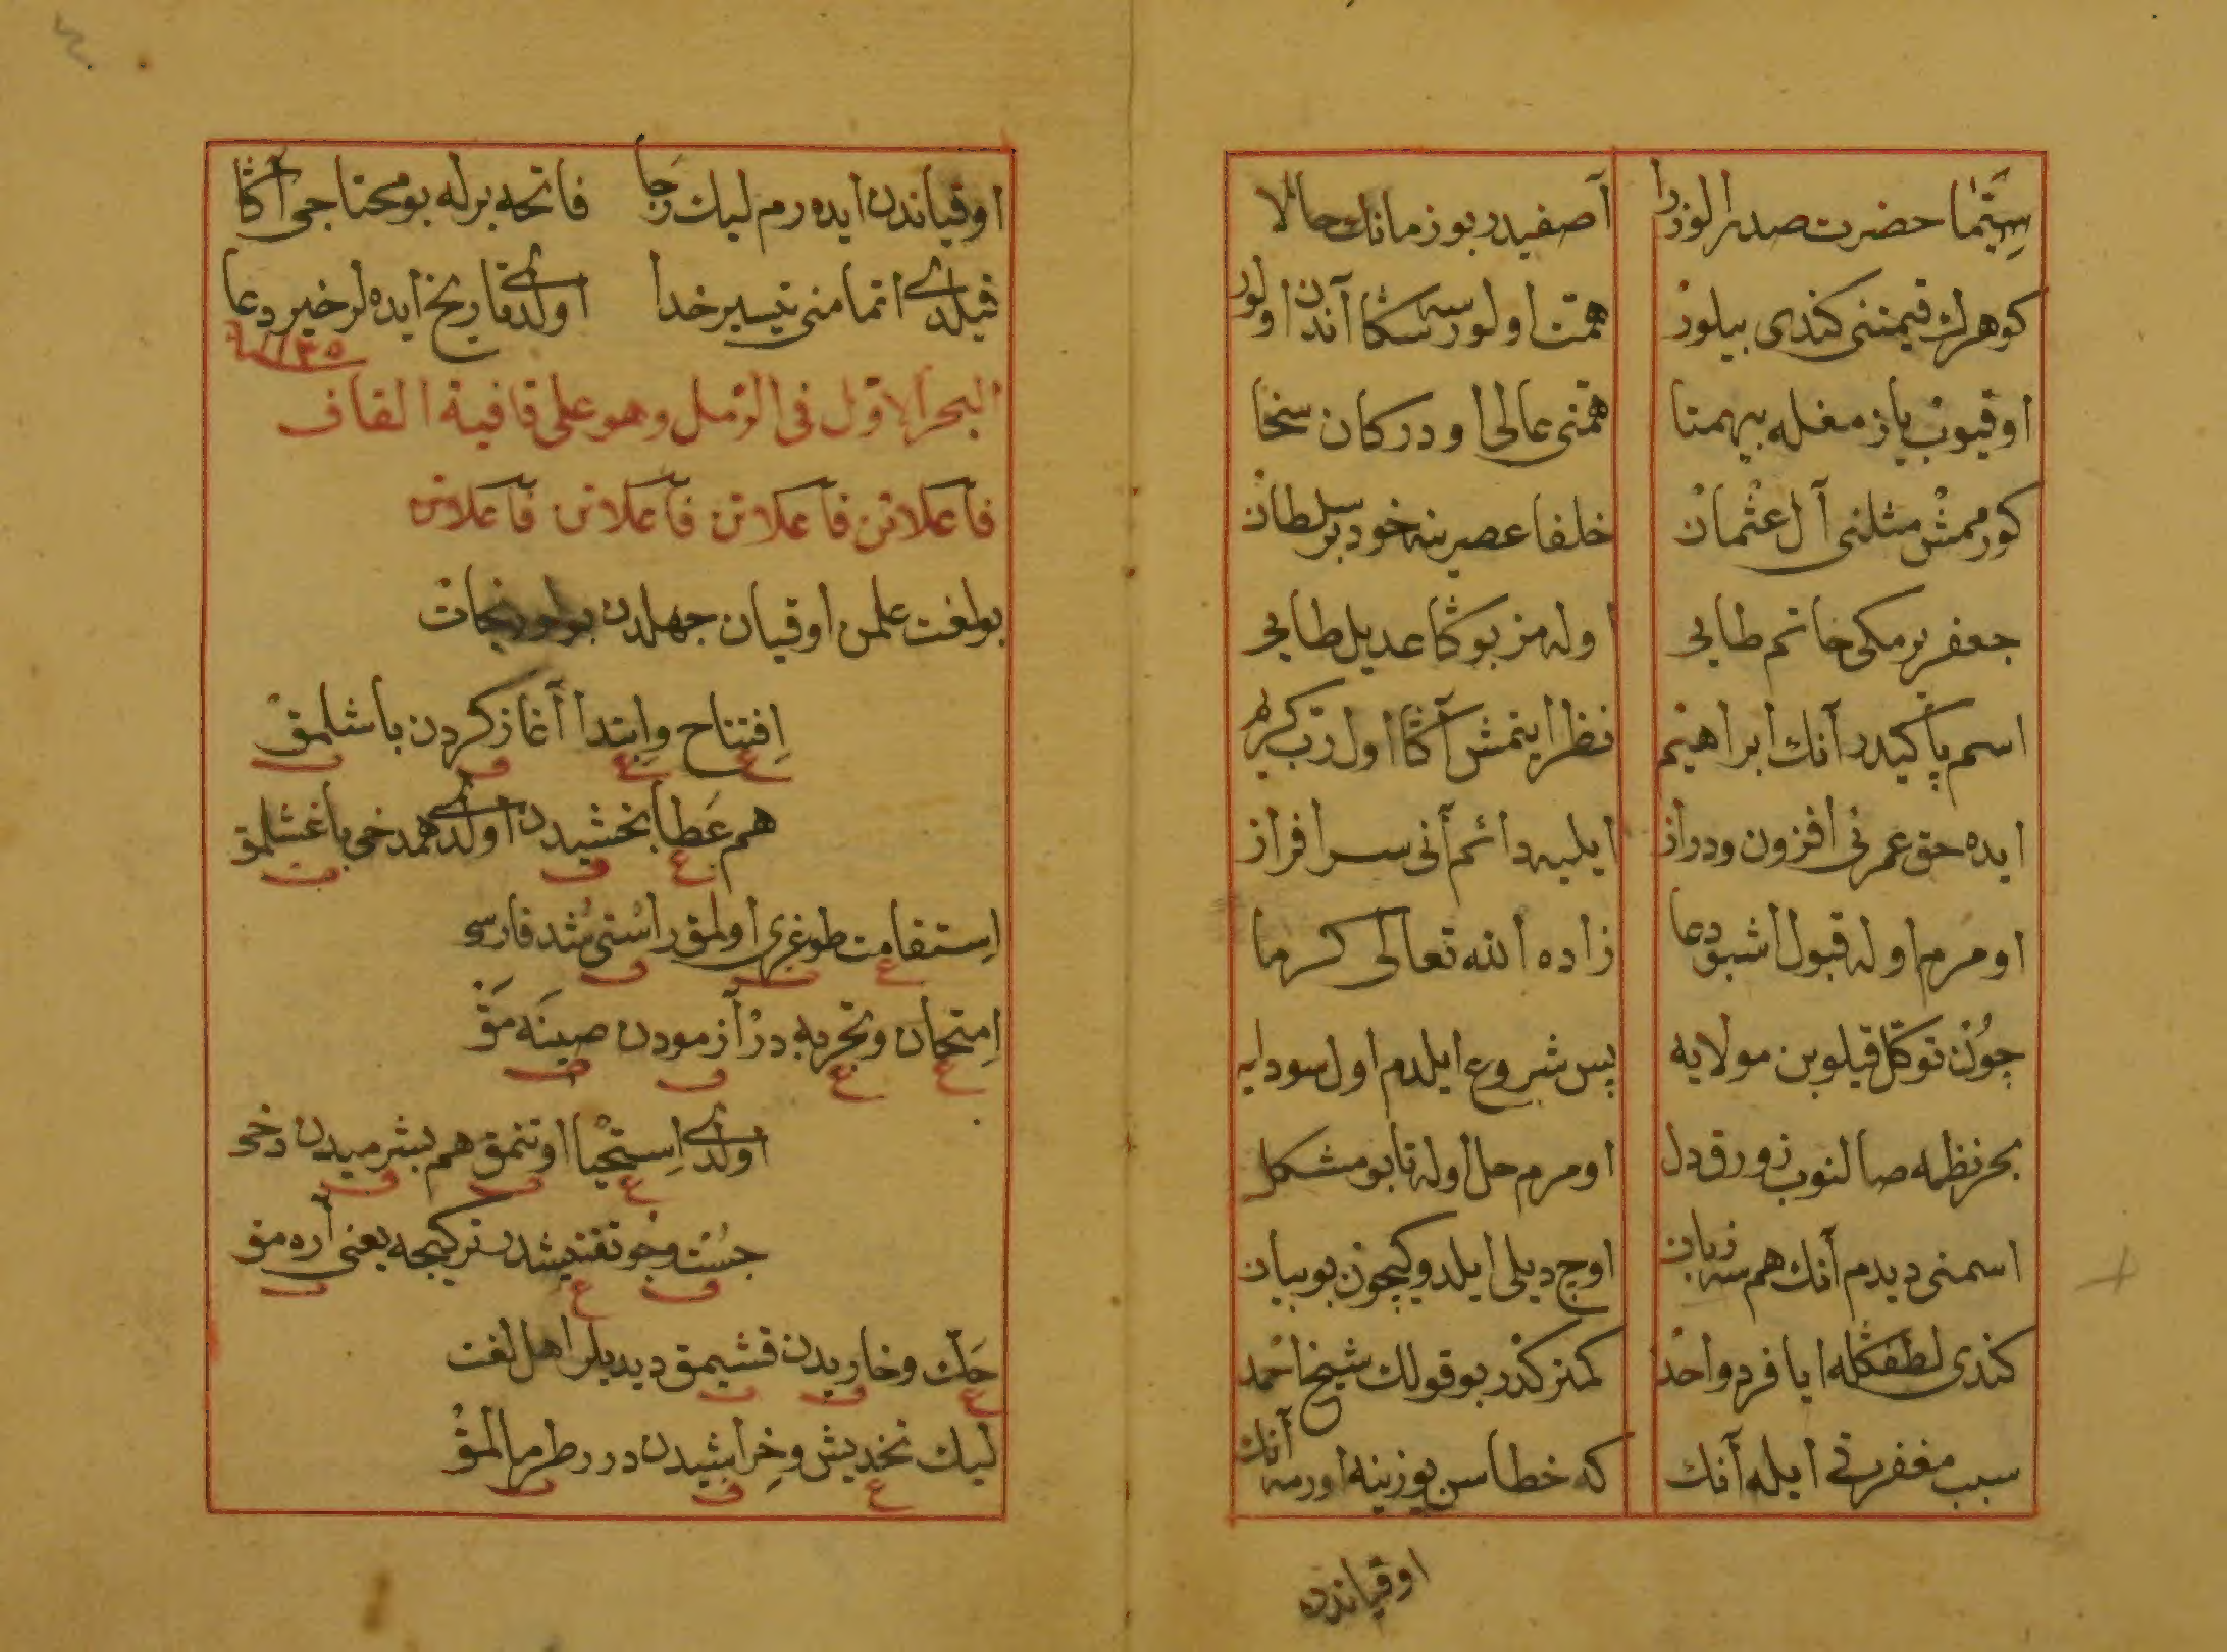 سيما حضرت صدر الوزرا آصفيدر بو زمانك حالا
كوهرك قيمتنى كندى بيلور همت اولورسه سكا آندن اولور
اوقيوب يازمغله بيهمتا همتى عالى اودر كان سخا
كورممش مثلنى آل عثمان خلفا عصرينه خود بر سلطان
جعفر برمكى خاتم طايى اوله مز بوكا عديل طايى
اسم پاكيدر آنك ابراهيم نظر ايتمش آكا اول رب كريم
ايده حق عمرنى افزون ودراز ايليه دائم آنى سرافراز
اومرم اوله قبول اشبو دعا زاده الله تعالى كرما
چون توكل قيلوبن مولايه پس شروع ايلدم اول سودايه
بحر نظمه صالنوب زورق دل اومرم حل اوله تا بو مشكل
اسمنى ديدم آنك هم سه زبان اوچ ديلى ايلدوكيچون بو بيان
كندى لطفكله ايا فرد واحد كمتركدر بو قولك شيخ احمد
سبب مغفرتى ايله آنك كه خطاسن يوزينه اورمه آنك
اوقياندن
اوقياندن ايده رم ليك رجا فاتحه برله بو محتاجى آكا
قيلدى اتمامنى تيسير خدا اولدى تاريخ ايده لر خير دعا
البحر الاول فى الرمل وهو على قافية القاف
فاعلاتن فاعلاتن فاعلاتن فاعلاتن
بو لغت علمن اوقيان جهلدن بولور نجات
افتتاح وابتدا آغاز كردن باشلمق
ع ع ف ت
هم عطا بخشيدن اولدى همدخى باغشلمق
ع ف ت
استقامت طوغرى اولمق راستى شد فارسى
ع ت ف
امتحان وتجربه در آزمودن صينه مق
ع ع ف ت
اولدى استحيا اوتنمق هم بشرميدن دخى
ع ت ف
جست وجو تفتيشدر تركيجه يعنى آره مق
ف ع ت
حك وخاريدن قشيمق ديديلر اهل لغت
ع ف ت
ليك تخديش وخراشيدن درر طرمالمق
ع ف ت